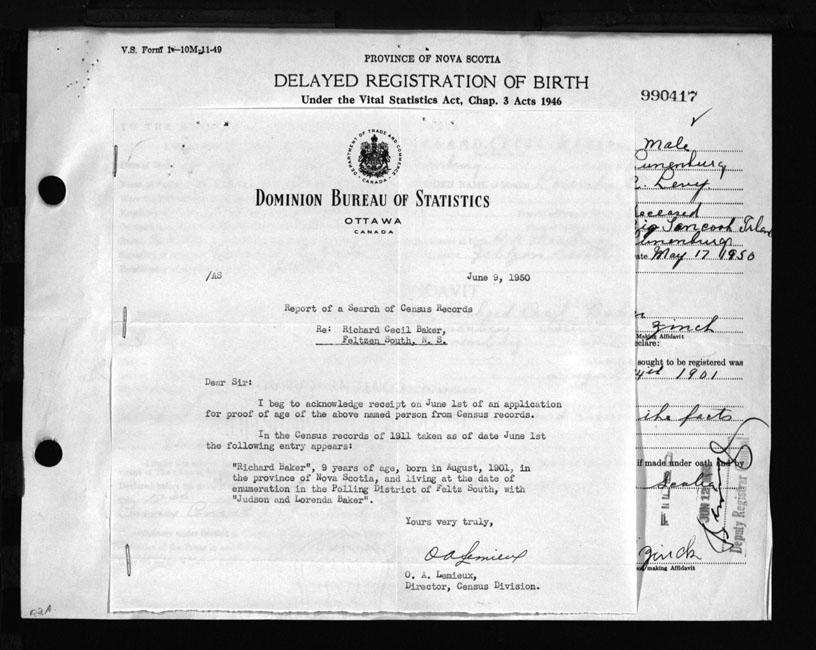 V.S. Form 1-10M-11-49
PROVINCE OF NOVA SCOTIA
DELAYED REGISTRATION OF BIRTH
Under the Vital Statistics Act, Chap. 3 Acts 1946
990417
DEPARTMENT OF TRADE AND COMMERCE
CANADA
DOMINION BUREAU OF STATISTICS
OTTAWA
CANADA
/AS
June 9, 1950
Report of a Search of Census Records
Re: Richard Cecil Baker,
Feltzen South, N. S.
Dear Sir:
I beg to acknowledge receipt on June 1st of an application
for proof of age of the above named person from Census records.
In the Census records of 1911 taken as of date June 1st
the following entry appears:
"Richard Baker", 9 years of age, born in August, 1901, in
the province of Nova Scotia, and living at the date of
enumeration in the Polling District of Feltz South, with
"Judson and Lorenda Baker".
Yours very truly,
O A Lemieux
O. A. Lemieux,
Director, Census Division.
Male
Lunenburg
Levy
May 17 1950
zinck
Making Affidavit
eclare:
sought to be registered was
1901
the facts
if made under oath and by
JUN 12
Deputy Registrar
zinck
making Affidavit